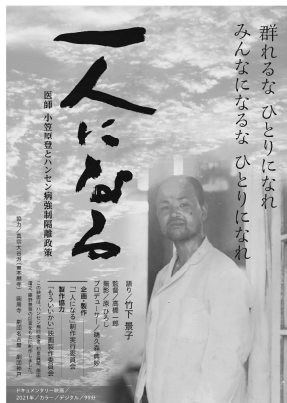 群れるな ひとりになれ
みんなになるな ひとりになれ
一人になる
医師 小笠原登とハンセン病強制隔離政策
語り/竹下景子
監督/高橋一郎
撮影/原ひろし
プロデューサー/鵜久森典妙
企画・製作
「一人になる」制作実行委員会
製作協力
「もういいかい」映画製作委員会
協力/真宗大谷派(東本願寺) 圓周寺 劇団名古屋 劇団神戸
ドキュメンタリー映画/
2021年/カラー/デジタル/99分